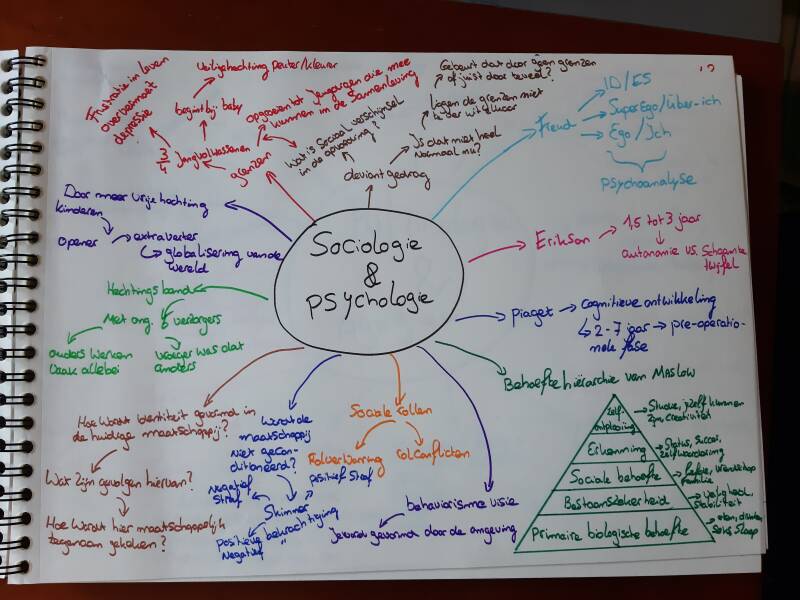 Sociologie
&
PSychologie
Frustratie in leven
overgemoet
depressie
Veilige hechting peuter/kleuer
begint bij baby
3/4
Jongvolwassenen
grenzen
opgroeien tot Jongeren die mee
kunnen in de Samenleving
Wat is Sociaal verschijnsel
in de opvoering?
deviant gedrag
Is dat niet heel
normaal nu?
liggen de grenzen niet
helder
Gebeurt dat door géén grenzen
of juist door teveel?
Freud
ID/ES
SuperEgo/Über-ich
Ego/Ich
Psychoanalyse
Erikson
1,5 tot 3 jaar
autonomie vs. Schaamte
twijfel
Piaget
Cognitieve ontwikkeling
2-7 jaar → pre-operatio-
nele fase
Behoefte hiërarchie van Maslow
Zelf-
ontplooiing
Erkenning
Sociale behoefte
Bestaanszekerheid
Primaire biologische behoefte
Studie, jezelf kunnen
zijn, creativiteit
Status, Succes,
zelfwaardering
liefde, vriendschap
familie
veiligheid,
stabiliteit
eten, drinken,
Seks Slaap
behaviorisme visie
Je word gevormd door de omgeving
Sociale rollen
Rolverwarring
rolconflicten
Wordt de
maatschappij
niet gecon-
ditioneerd?
Negatief
Straf
positief Straf
Skinner
Positieve bekrachtiging
Negatief "
Hoe wordt identiteit gevormd in
de huidige maatschappij?
Wat zijn gevolgen hiervan?
Hoe wordt hier maatschappelijk
tegenaan gekeken?
Hechtingsband
Met ong. 5 verzorgers
ouders werken
vaak allebei
vroeger was dat
anders
Door meer vrije hechting
kinderen
opener
extraverter
globalisering van de
wereld